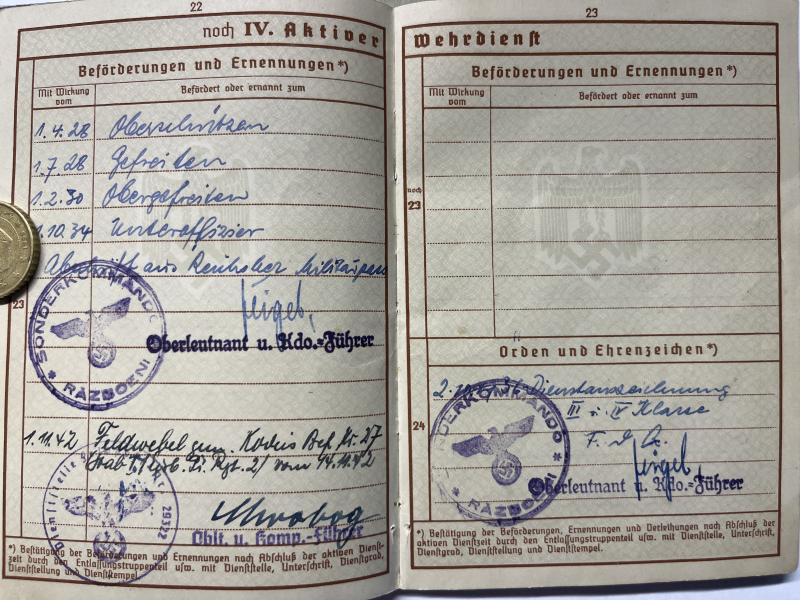 22
noch IV. Aktiver
Beförderungen und Ernennungen*)
Mit Wirkung vom
Befördert oder ernannt zum
1.4.28 Oberschützen
1.7.28 Gefreiten
1.2.30 Obergefreiten
1.10.34 Unteroffizier
aus Reichsheer Militärpass
23
SONDERKOMMANDO
* RAZBOENI *
Oberleutnant u. Kdo.=Führer
1.11.42 Feldwebel
Dienststelle
29122
Oblt. u. Komp.=Führer
*) Bestätigung der Beförderungen und Ernennungen nach Abschluß der aktiven Dienst-
zeit durch den Entlassungstruppenteil usw. mit Dienststelle, Unterschrift, Dienstgrad,
Dienststellung und Dienststempel.
23
Wehrdienst
Beförderungen und Ernennungen*)
Mit Wirkung vom
Befördert oder ernannt zum
noch
23
Orden und Ehrenzeichen*)
24
Dienstauszeichnung
III u. IV Klasse
F. d. R.
SONDERKOMMANDO
* RAZBOENI
Oberleutnant u. Kdo.=Führer
*) Bestätigung der Beförderungen, Ernennungen und Verleihungen nach Abschluß der
aktiven Dienstzeit durch den Entlassungstruppenteil usw. mit Dienststelle, Unterschrift,
Dienstgrad, Dienststellung und Dienststempel.